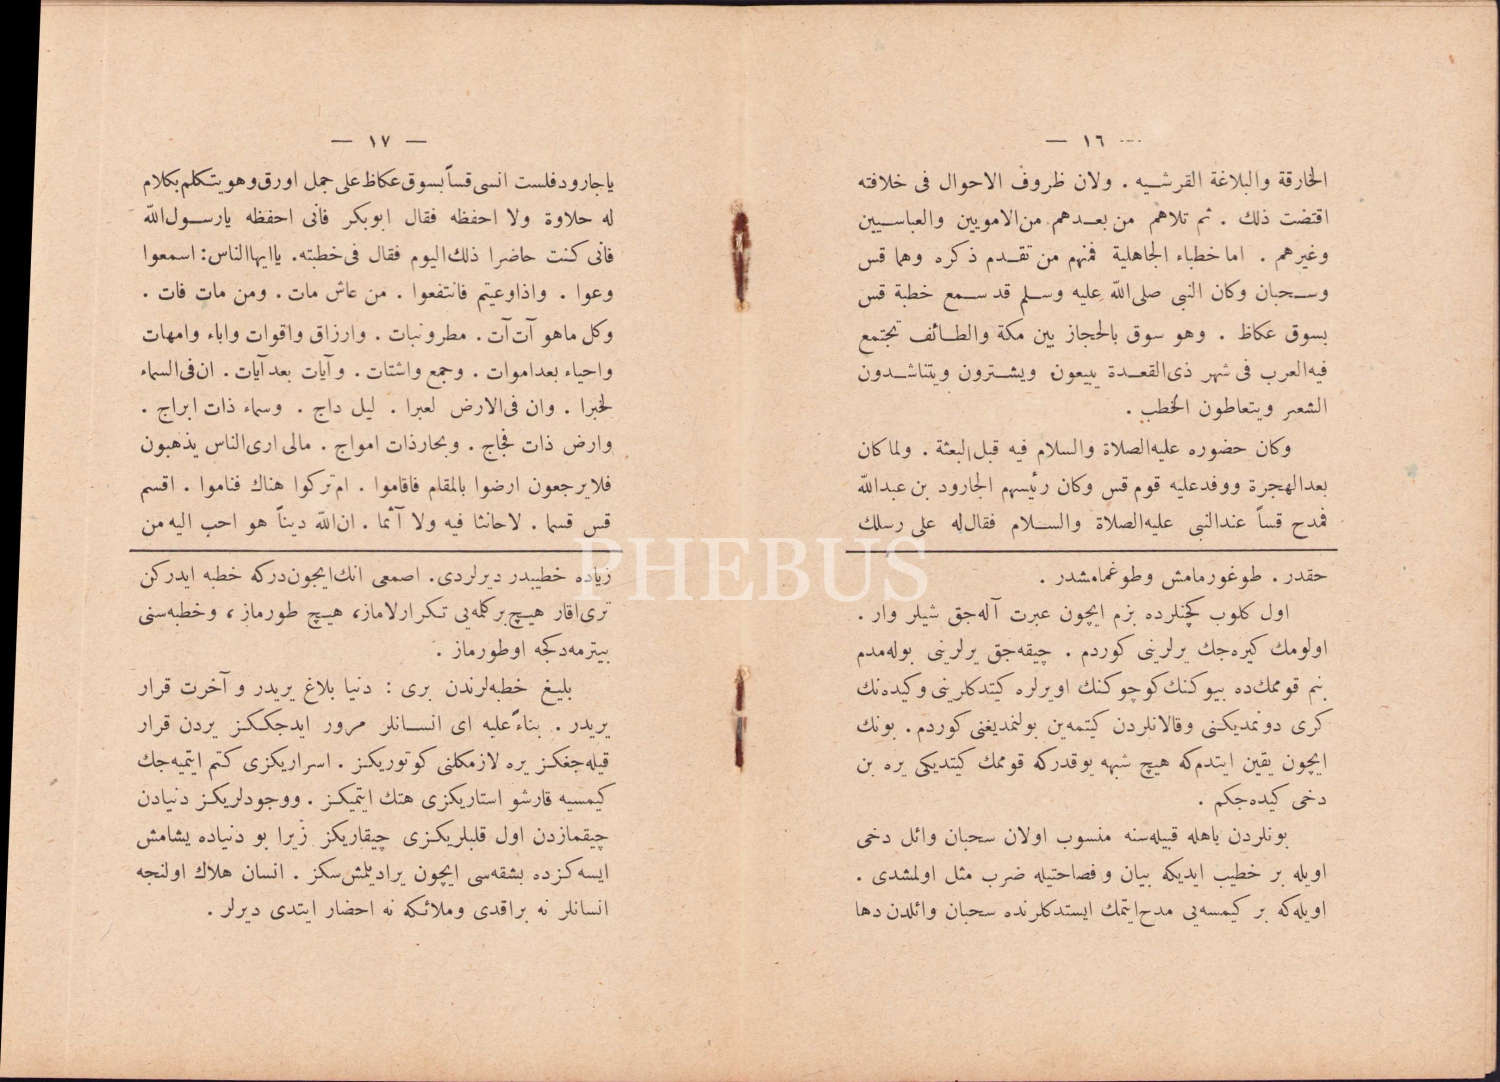 — ١٦ —
الخارقة والبلاغة القرشيه . ولان ظروف الاحوال فى خلافته
اقتضت ذلك . ثم تلاهم من بعدهم من الامويين والعباسيين
وغيرهم . اما خطباء الجاهلية فمنهم من تقدم ذكره وهما قس
وسحبان وكان النبى صلى الله عليه وسلم قد سمع خطبة قس
بسوق عكاظ . وهو سوق بالحجاز بين مكة والطائف تجتمع
فيه العرب فى شهر ذى القعدة يبيعون ويشترون ويتناشدون
الشعر ويتعاطون الخطب .
وكان حضوره عليه الصلاة والسلام فيه قبل البعثة . ولما كان
بعد الهجرة ووفد عليه قوم قس وكان رئيسهم الجارود بن عبدالله
فمدح قساً عند النبى عليه الصلاة والسلام فقال له على رسلك
حقدر . طوغورمامش وطوغمامشدر .
اول كلوب كچنلرده بزم ايچون عبرت آله‌جق شيلر وار .
اولومك كيره‌جك يرلرينى كوردم . چيقه‌جق يرلرينى بوله‌مدم
بنم قوممك‌ده بيوكنك كوچوكنك اويرلره كيتدكلرينى وكيده‌نك
كرى دونمديكنى وقالانلردن كيتمه‌ين بولنمديغنى كوردم . بونك
ايچون يقين ايتدم‌كه هيچ شبهه يوقدركه قوممك كيتديكى يره بن
دخى كيده‌جكم .
بونلردن باهله قبيله‌سنه منسوب اولان سحبان وائل دخى
اويله بر خطيب ايديكه بيان وفصاحتيله ضرب مثل اولمشدى .
اويله‌كه بر كيمسه‌يى مدح ايتمك ايستدكلرنده سحبان وائلدن دها
— ١٧ —
ياجارود فلست انسى قساً بسوق عكاظ على جمل اورق وهو يتكلم بكلام
له حلاوة ولا احفظه فقال ابوبكر فانى احفظه يارسول الله
فانى كنت حاضرا ذلك اليوم فقال فى خطبته. ياايها الناس: اسمعوا
وعوا . واذا وعيتم فانتفعوا . من عاش مات . ومن مات فات .
وكل ماهو آت آت . مطر ونبات . وارزاق واقوات واباء وامهات
واحياء بعد اموات . وجمع واشتات . وآيات بعد آيات . ان فى السماء
لخبرا . وان فى الارض لعبرا . ليل داج . وسماء ذات ابراج .
وارض ذات فجاج . وبحار ذات امواج . مالى ارى الناس يذهبون
فلا يرجعون ارضوا بالمقام فاقاموا . ام تركوا هناك فناموا . اقسم
قس قسما . لا حانثا فيه ولا آثما . ان الله ديناً هو احب اليه من
زياده خطيبدر ديرلردى. اصمعى انك ايچون دركه خطبه ايدركن
ترى اقار هيچ بر كلمه‌يى تكرارلاماز، هيچ طورماز ، وخطبه‌سنى
بيترمه‌دكجه اوطورماز .
بليغ خطبه‌لرندن برى : دنيا بلاغ يريدر و آخرت قرار
يريدر . بناءً عليه اى انسانلر مرور ايدجككز يردن قرار
قيله‌جغكز يره لازمكلنى كوتوريكز . اسراريكزى كتم ايتميه‌جك
كيمسيه قارشو استاريكزى هتك ايتميكز . ووجودلريكز دنيادن
چيقمازدن اول قلبلريكزى چيقاريكز زيرا بو دنياده يشامش
ايسه‌كزده بشقه‌سى ايچون يرادلمش‌سكز . انسان هلاك اولنجه
انسانلر نه براقدى وملائكه نه احضار ايتدى ديرلر .
PHEBUS